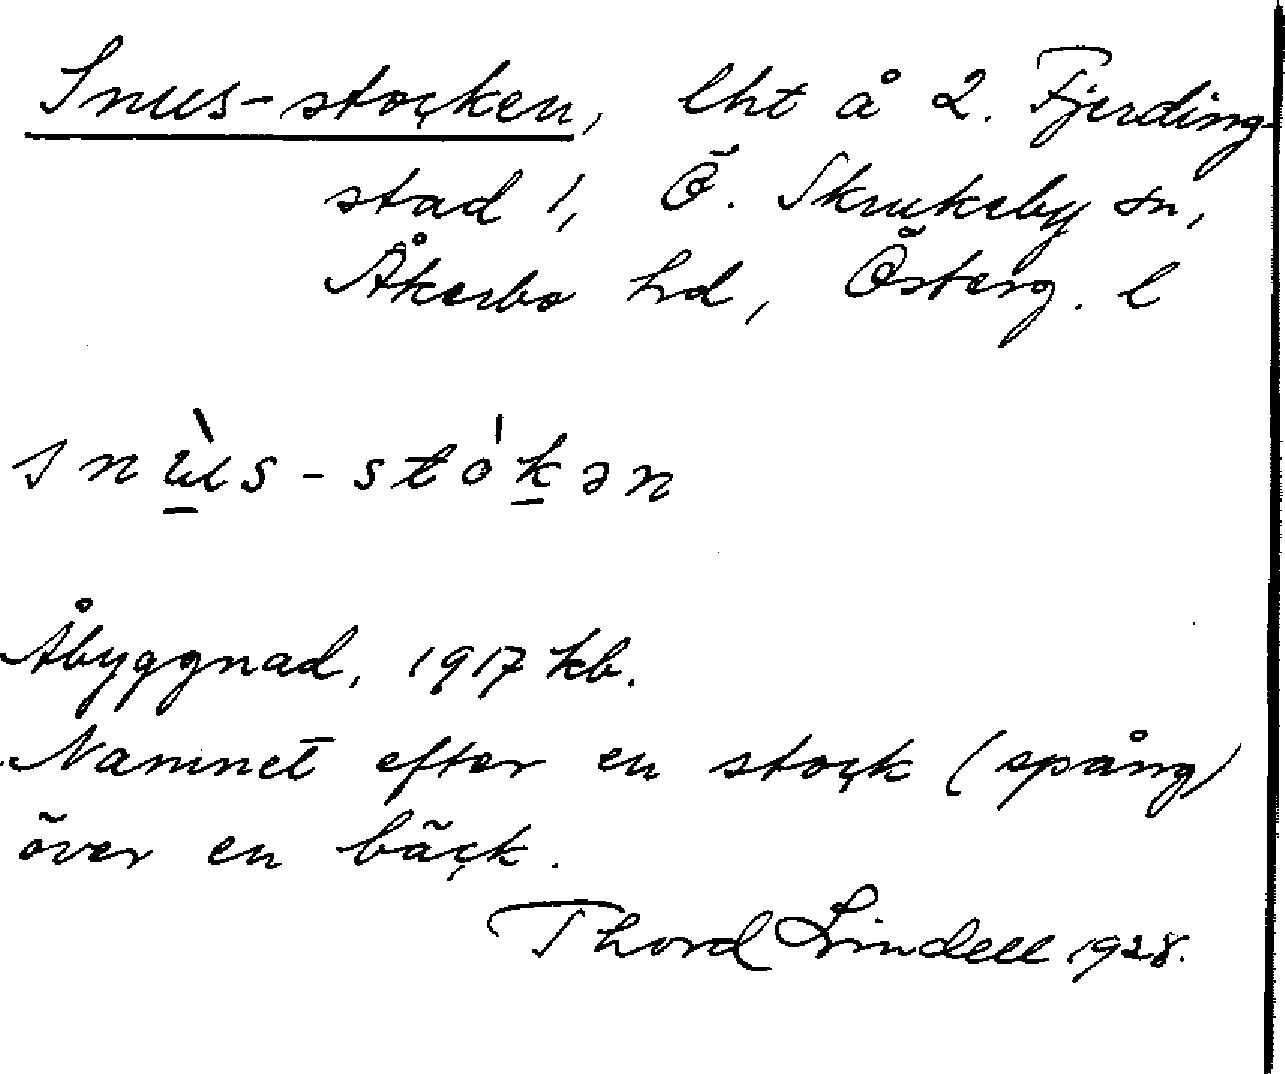 Snus-stocken, lht å 2. Fjerding-
stad 1, Ö. Skrukeby sn,
Åkerbo hd, Österg. l
snù̲s-stók̲ən
Åbyggnad, 1917 kb.
Namnet efter en stock (spång)
över en bäck.
Thord Lindell 1928.